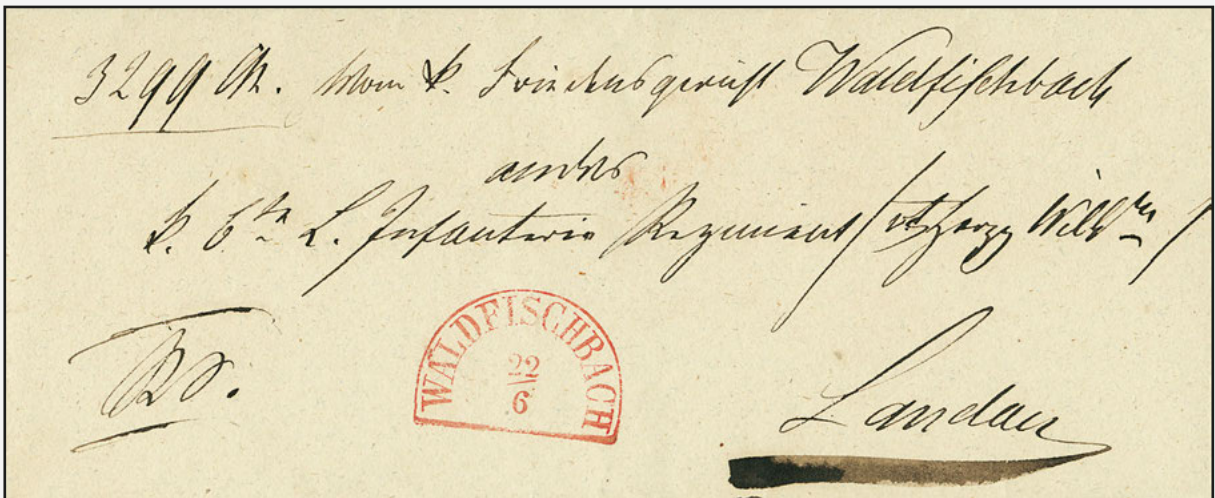 3299 Vom k. Friedensgericht Waldfischbach
an das
k. 6te L. Infanterie Regiment (Herzog Wilhm)
WALDFISCHBACH
22
6
Landau